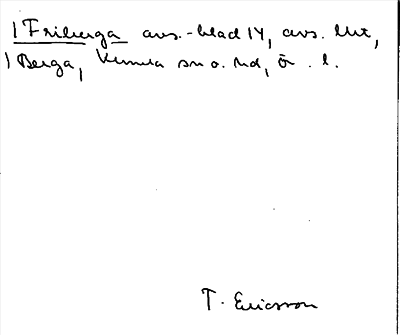 1 Friberga avs.-blad 14, avs. lht,
1 Berga, Kumla sn o. hd, Ö . l.
T. Ericsson